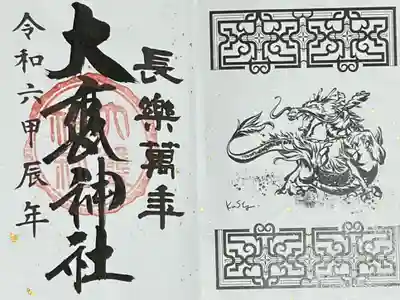 長樂萬年
大甕神社
令和六甲辰年